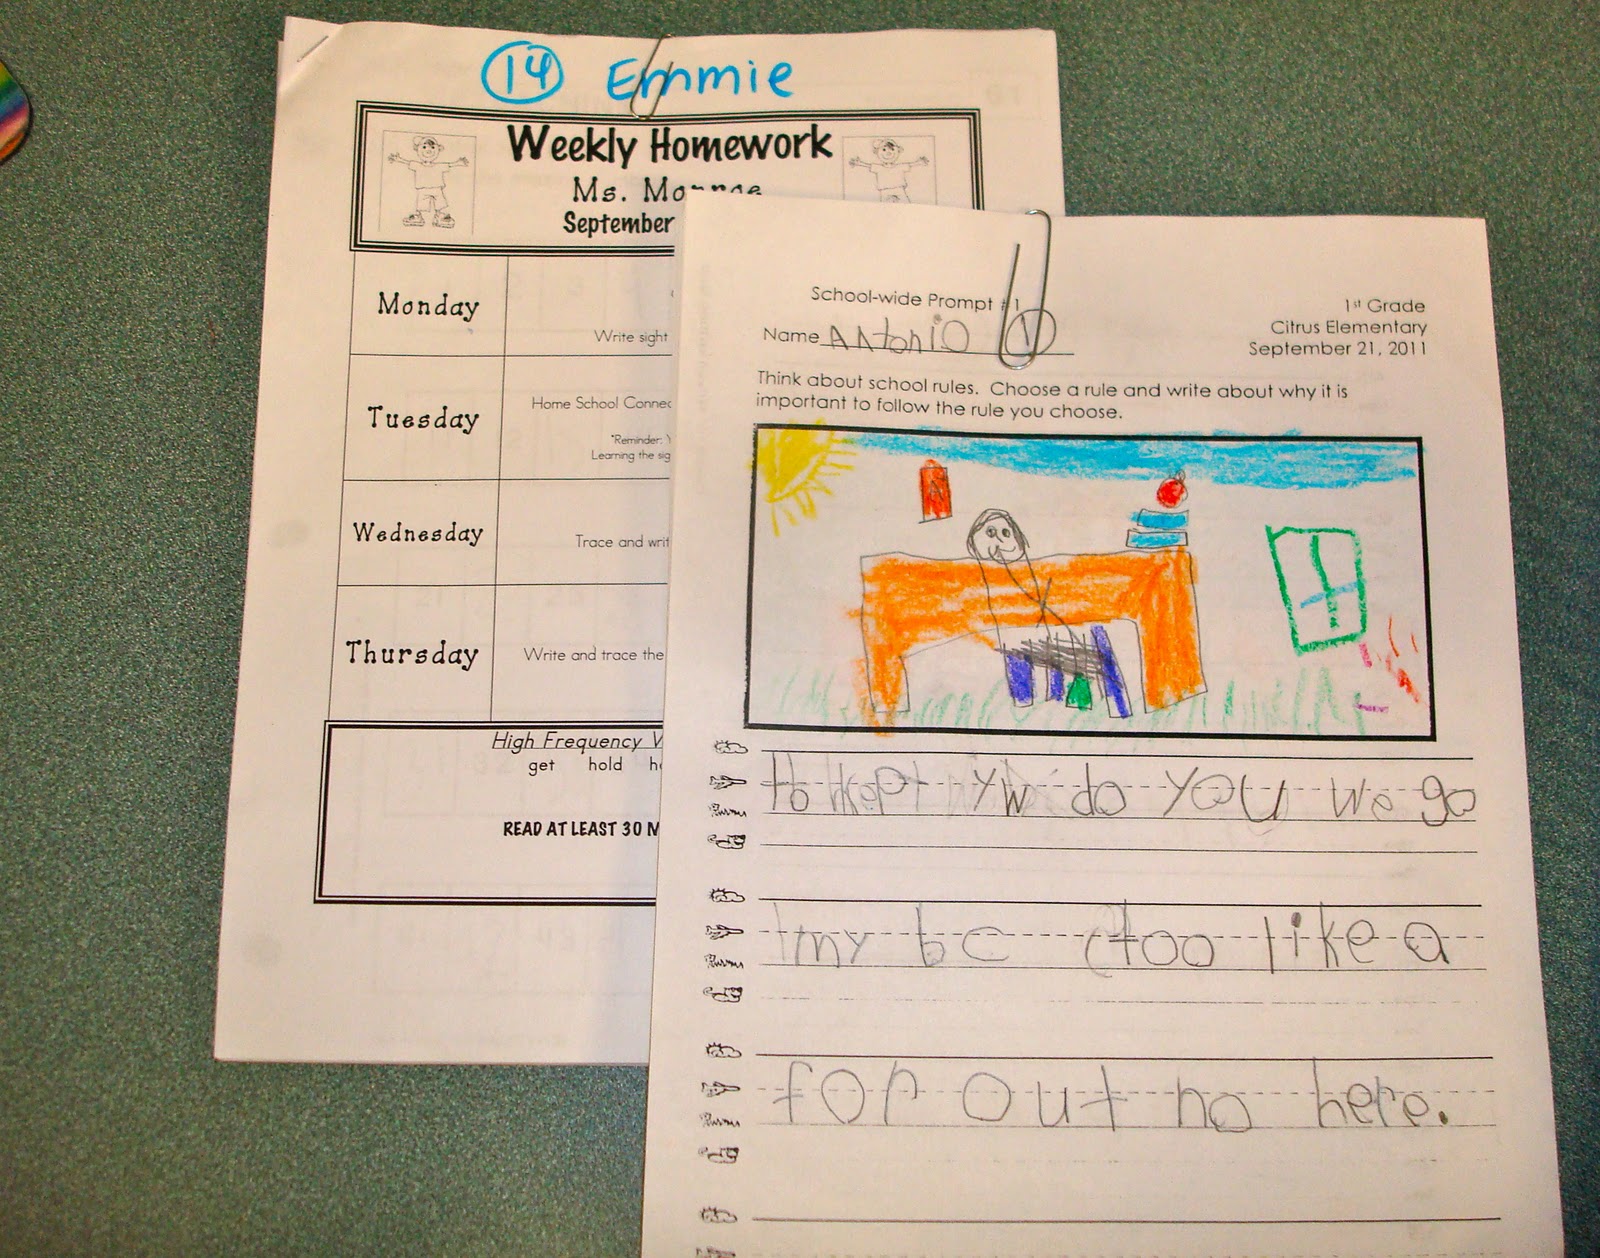 14 Emmie
Weekly Homework
Ms. Monroe
September
Monday
Write sight
Tuesday
Home School Connec
*Reminder: Y
Learning the sig
Wednesday
Trace and writ
Thursday
Write and trace the
High Frequency
get hold
READ AT LEAST 30 M
School-wide Prompt #1
Name Antonio 1
1st Grade
Citrus Elementary
September 21, 2011
Think about school rules. Choose a rule and write about why it is
important to follow the rule you choose.
A
yw do you we go
my bc too like a
for out no here.